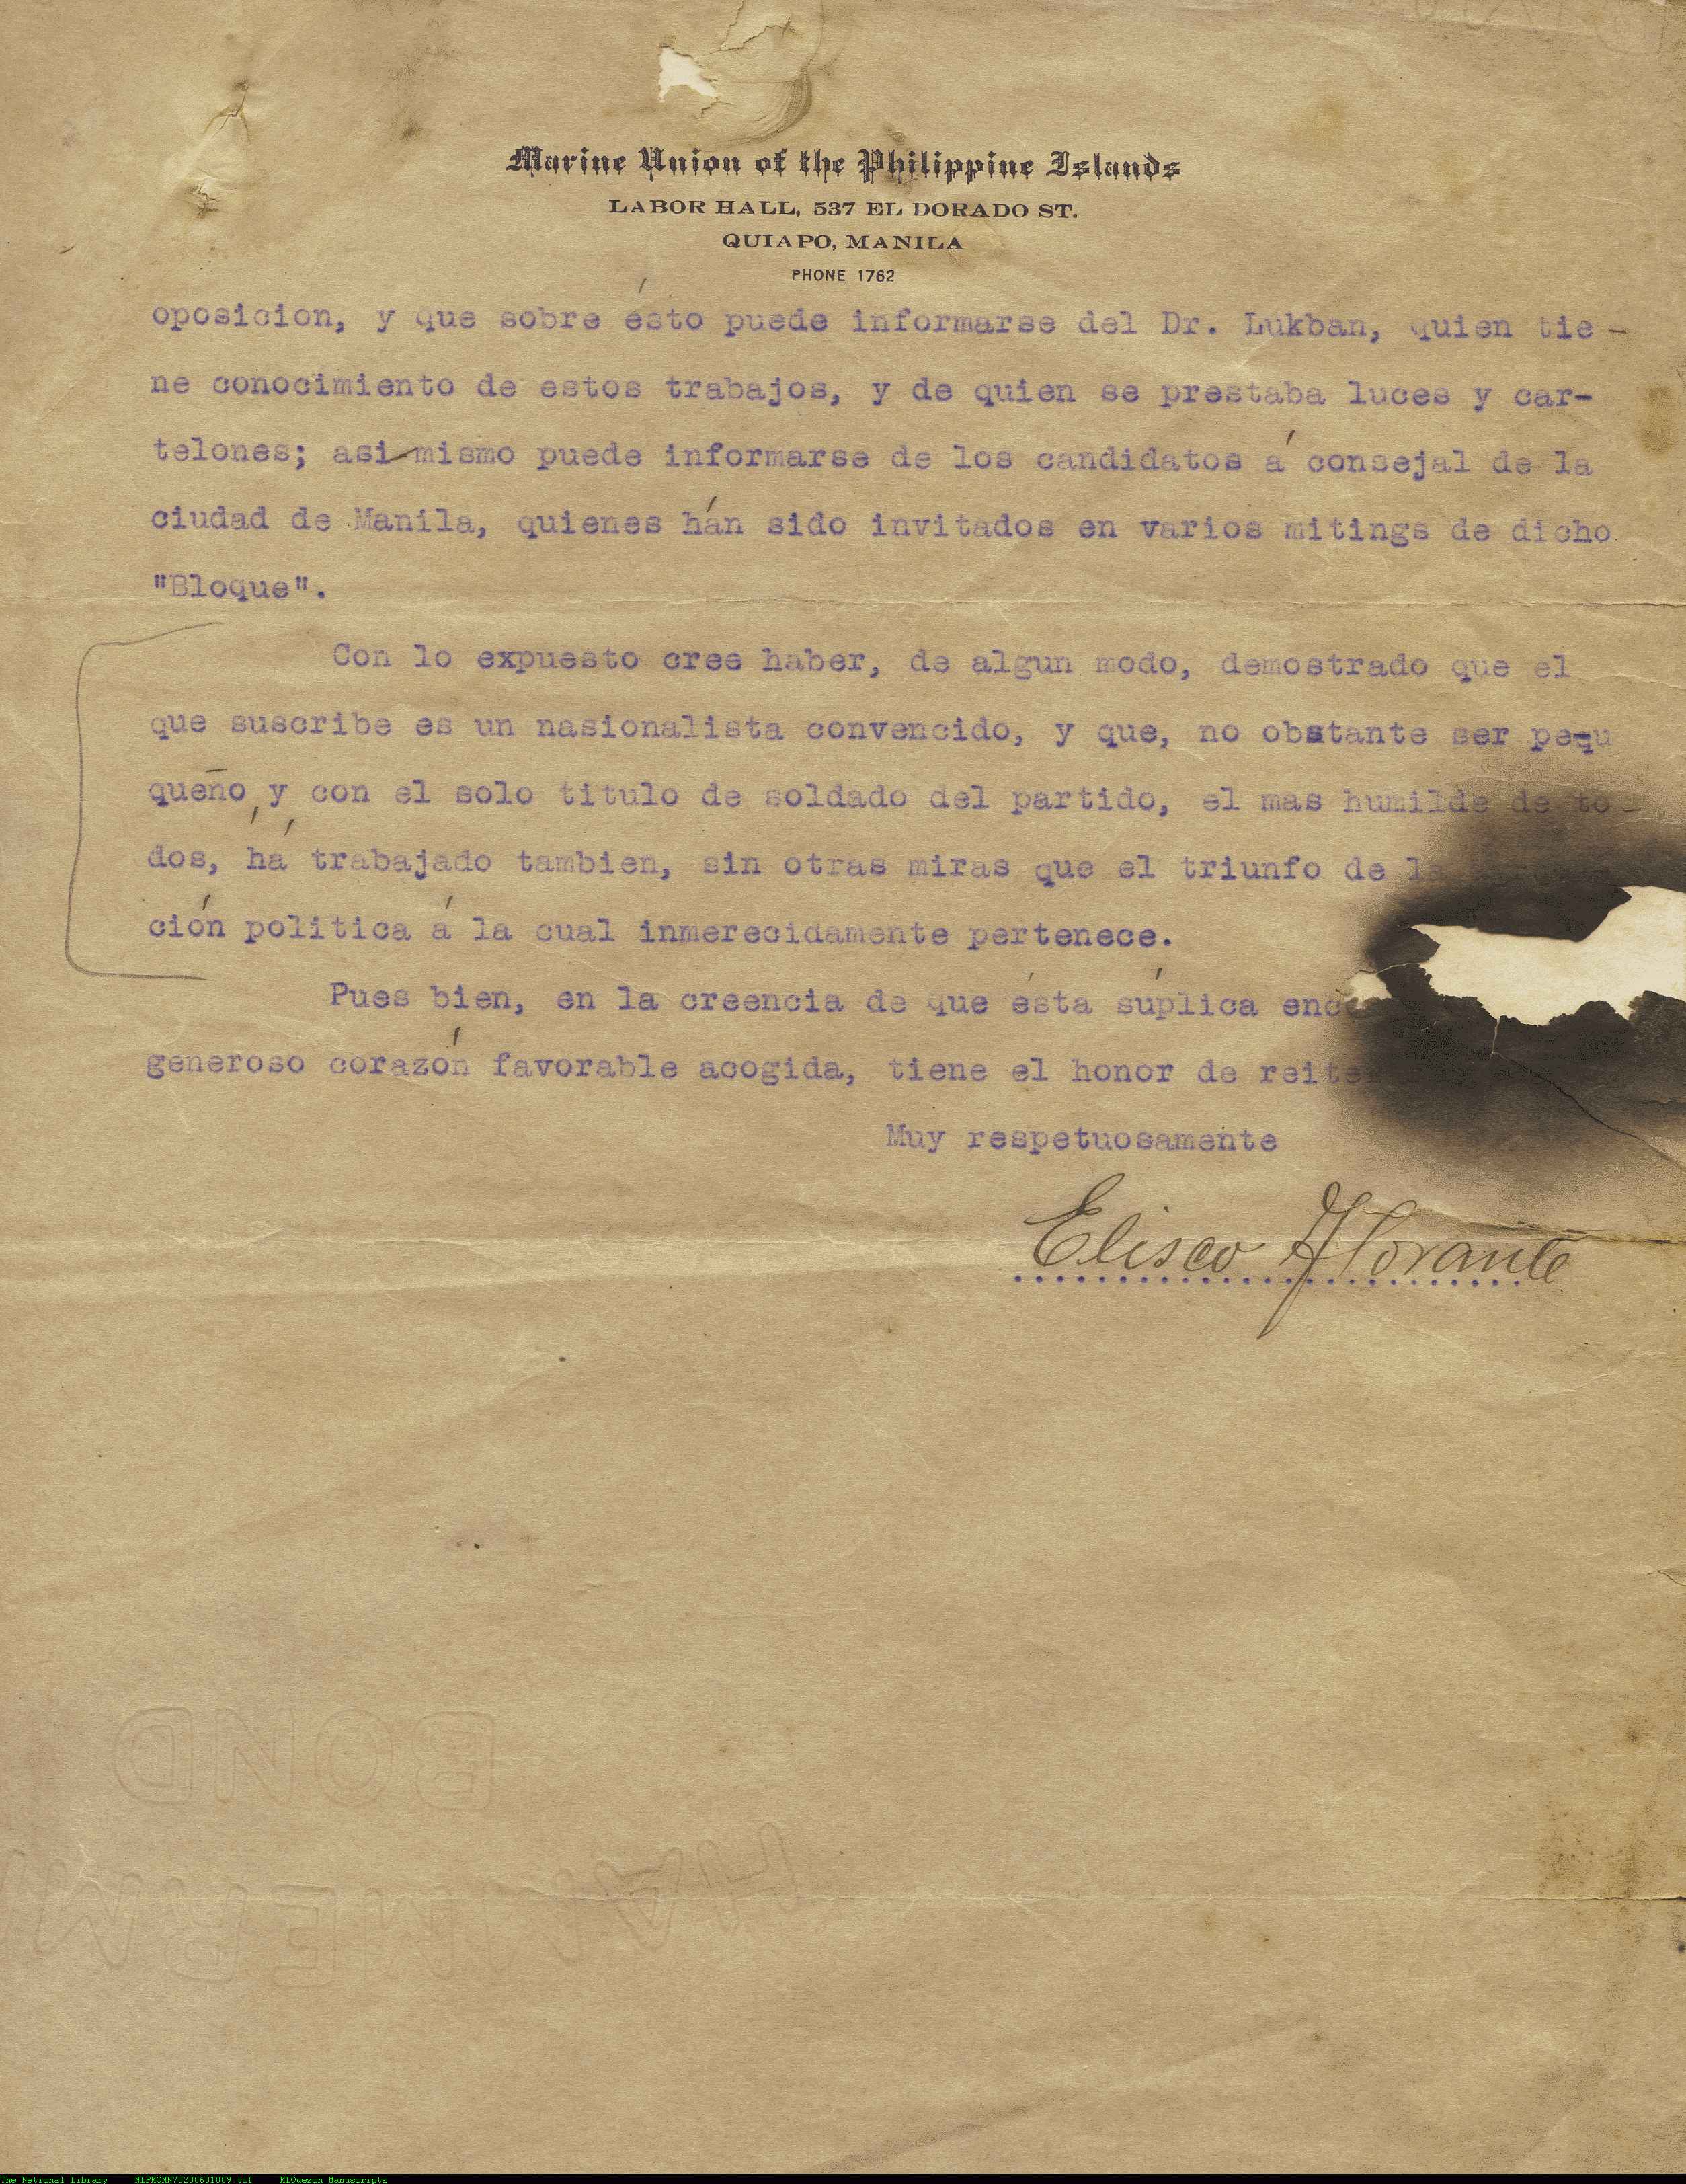 Marine Union of the Philippine Islands
LABOR HALL, 537 EL DORADO ST.
QUIAPO, MANILA
PHONE 1762
oposicion, y que sobre ésto puede informarse del Dr. Lukban, quien tie-
ne conocimiento de estos trabajos, y de quien se prestaba luces y car-
telones; asi-mismo puede informarse de los candidatos á consejal de la
ciudad de Manila, quienes hán sido invitados en varios mitings de dicho
"Bloque".
Con lo expuesto cree haber, de algun modo, demostrado que el
que suscribe es un nasionalista convencido, y que, no obstante ser pequ
queño, y con el solo titulo de soldado del partido, el mas humilde de to-
dos, há trabajado tambien, sin otras miras que el triunfo de la
ción politica á la cual inmerecidamente pertenece.
Pues bien, en la creencia de que ésta súplica enc
generoso corazón favorable acogida, tiene el honor de reite
Muy respetuosamente
Eliseo Florante
BOND
HAMMERM
The National Library NLPMQMN70200601009.tif MLQuezon Manuscripts